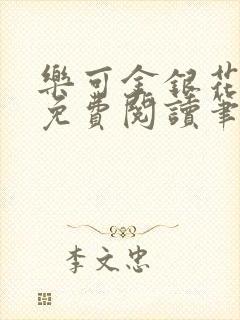 樂可金銀花
免費閱讀筆
李文忠